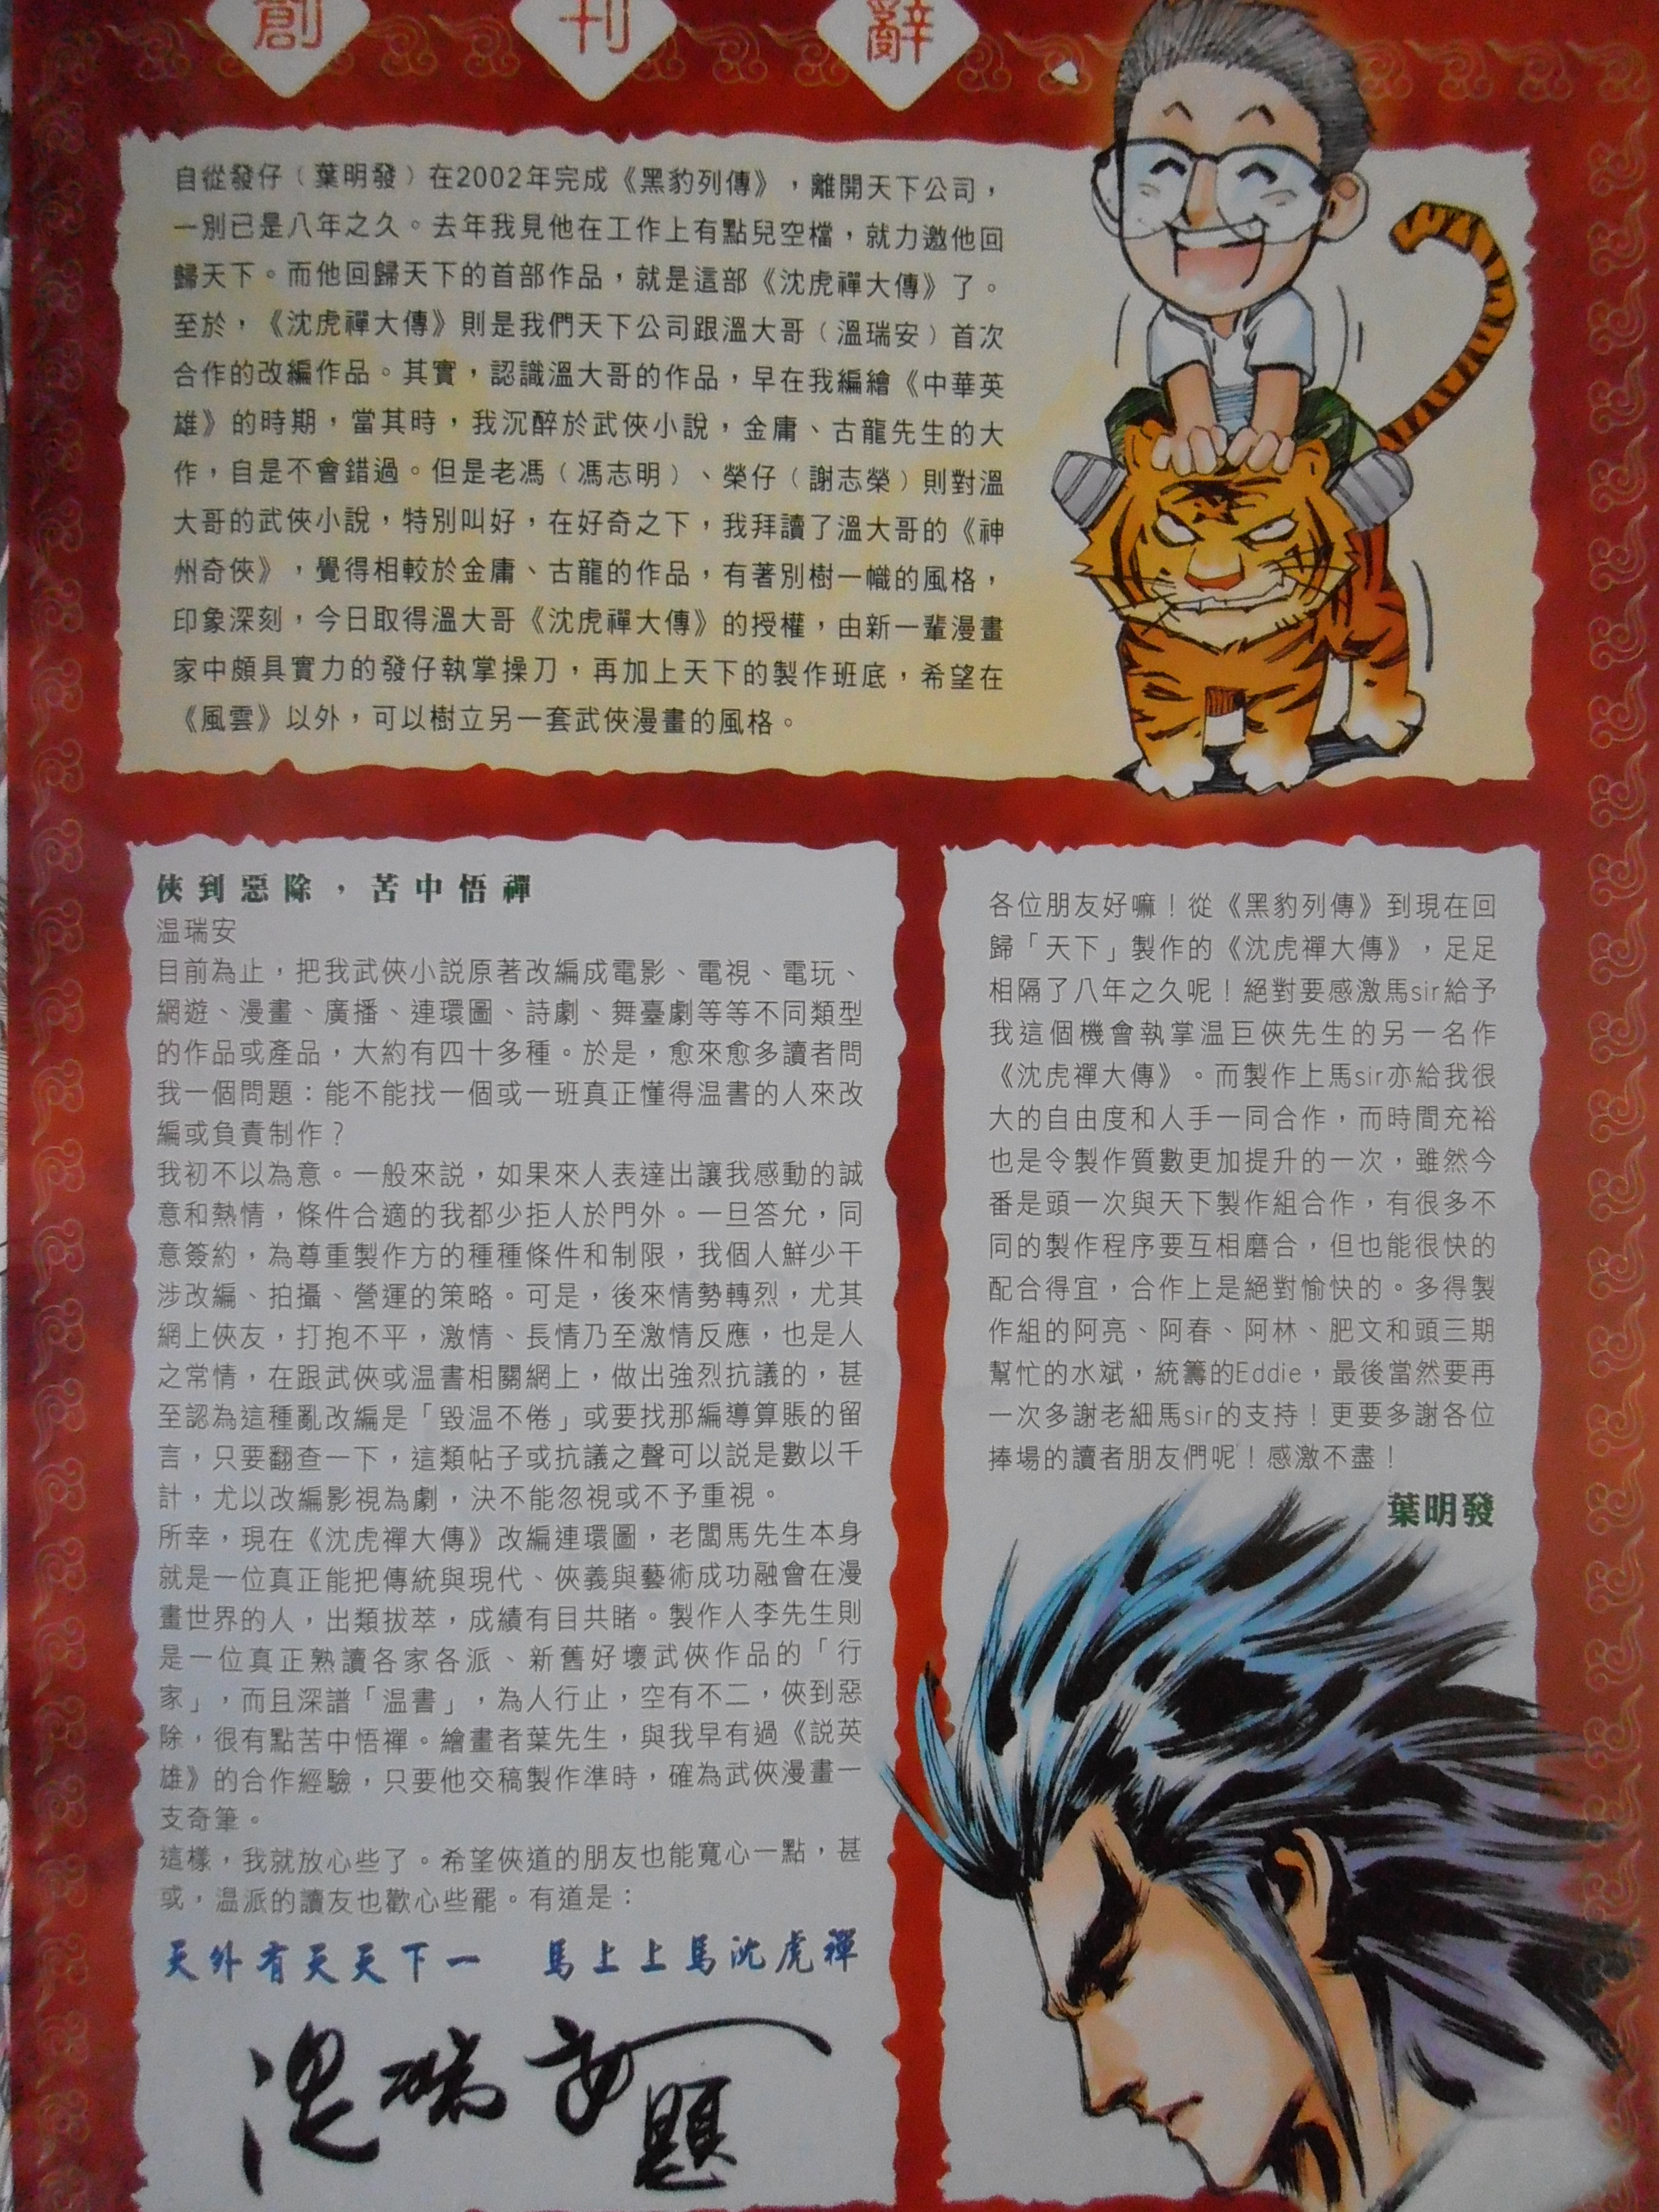 創刊辭
自從發仔﹙葉明發﹚在2002年完成《黑豹列傳》，離開天下公司，
一別已是八年之久。去年我見他在工作上有點兒空檔，就力邀他回
歸天下。而他回歸天下的首部作品，就是這部《沈虎禪大傳》了。
至於，《沈虎禪大傳》則是我們天下公司跟溫大哥﹙溫瑞安﹚首次
合作的改編作品。其實，認識溫大哥的作品，早在我編繪《中華英
雄》的時期，當其時，我沉醉於武俠小說，金庸、古龍先生的大
作，自是不會錯過。但是老馮﹙馮志明﹚、榮仔﹙謝志榮﹚則對溫
大哥的武俠小說，特別叫好，在好奇之下，我拜讀了溫大哥的《神
州奇俠》，覺得相較於金庸、古龍的作品，有著別樹一幟的風格，
印象深刻，今日取得溫大哥《沈虎禪大傳》的授權，由新一輩漫畫
家中頗具實力的發仔執掌操刀，再加上天下的製作班底，希望在
《風雲》以外，可以樹立另一套武俠漫畫的風格。
俠到惡除，苦中悟禪
温瑞安
目前為止，把我武俠小説原著改編成電影、電視、電玩、
網遊、漫畫、廣播、連環圖、詩劇、舞臺劇等等不同類型
的作品或產品，大約有四十多種。於是，愈來愈多讀者問
我一個問題：能不能找一個或一班真正懂得温書的人來改
編或負責制作？
我初不以為意。一般來説，如果來人表達出讓我感動的誠
意和熱情，條件合適的我都少拒人於門外。一旦答允，同
意簽約，為尊重製作方的種種條件和制限，我個人鮮少干
涉改編、拍攝、營運的策略。可是，後來情勢轉烈，尤其
網上俠友，打抱不平，激情、長情乃至激情反應，也是人
之常情，在跟武俠或温書相關網上，做出強烈抗議的，甚
至認為這種亂改編是「毀温不倦」或要找那編導算賬的留
言，只要翻查一下，這類帖子或抗議之聲可以説是數以千
計，尤以改編影視為劇，決不能忽視或不予重視。
所幸，現在《沈虎禪大傳》改編連環圖，老闆馬先生本身
就是一位真正能把傳統與現代、俠義與藝術成功融會在漫
畫世界的人，出類拔萃，成績有目共睹。製作人李先生則
是一位真正熟讀各家各派、新舊好壞武俠作品的「行
家」，而且深譜「温書」，為人行止，空有不二，俠到惡
除，很有點苦中悟禪。繪畫者葉先生，與我早有過《説英
雄》的合作經驗，只要他交稿製作準時，確為武俠漫畫一
支奇筆。
這樣，我就放心些了。希望俠道的朋友也能寬心一點，甚
或，温派的讀友也歡心些罷。有道是：
天外有天天下一　馬上上馬沈虎禪
温瑞安題
各位朋友好嘛！從《黑豹列傳》到現在回
歸「天下」製作的《沈虎禪大傳》，足足
相隔了八年之久呢！絕對要感激馬sir給予
我這個機會執掌温巨俠先生的另一名作
《沈虎禪大傳》。而製作上馬sir亦給我很
大的自由度和人手一同合作，而時間充裕
也是令製作質數更加提升的一次，雖然今
番是頭一次與天下製作組合作，有很多不
同的製作程序要互相磨合，但也能很快的
配合得宜，合作上是絕對愉快的。多得製
作組的阿亮、阿春、阿林、肥文和頭三期
幫忙的水斌，統籌的Eddie，最後當然要再
一次多謝老細馬sir的支持！更要多謝各位
捧場的讀者朋友們呢！感激不盡！
葉明發